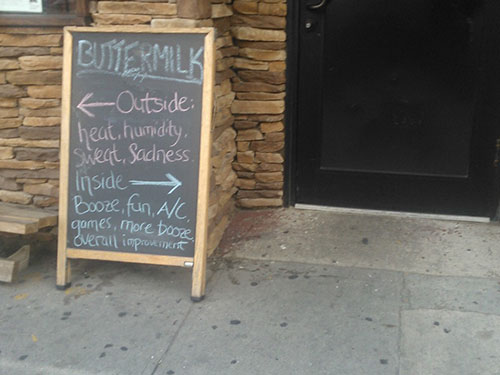 BUTTERMILK
Outside:
heat, humidity,
Sweat, Sadness
Inside
Booze, fun, A/C,
games, more booze,
overall improvement